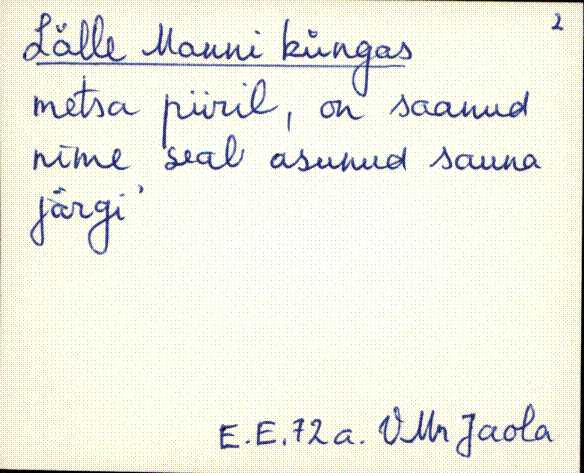 2
Lälle Manni küngas
metsa piiril, on saanud
nime seal asunud sauna
järgi'
E.E.72 a. VMr Jaola